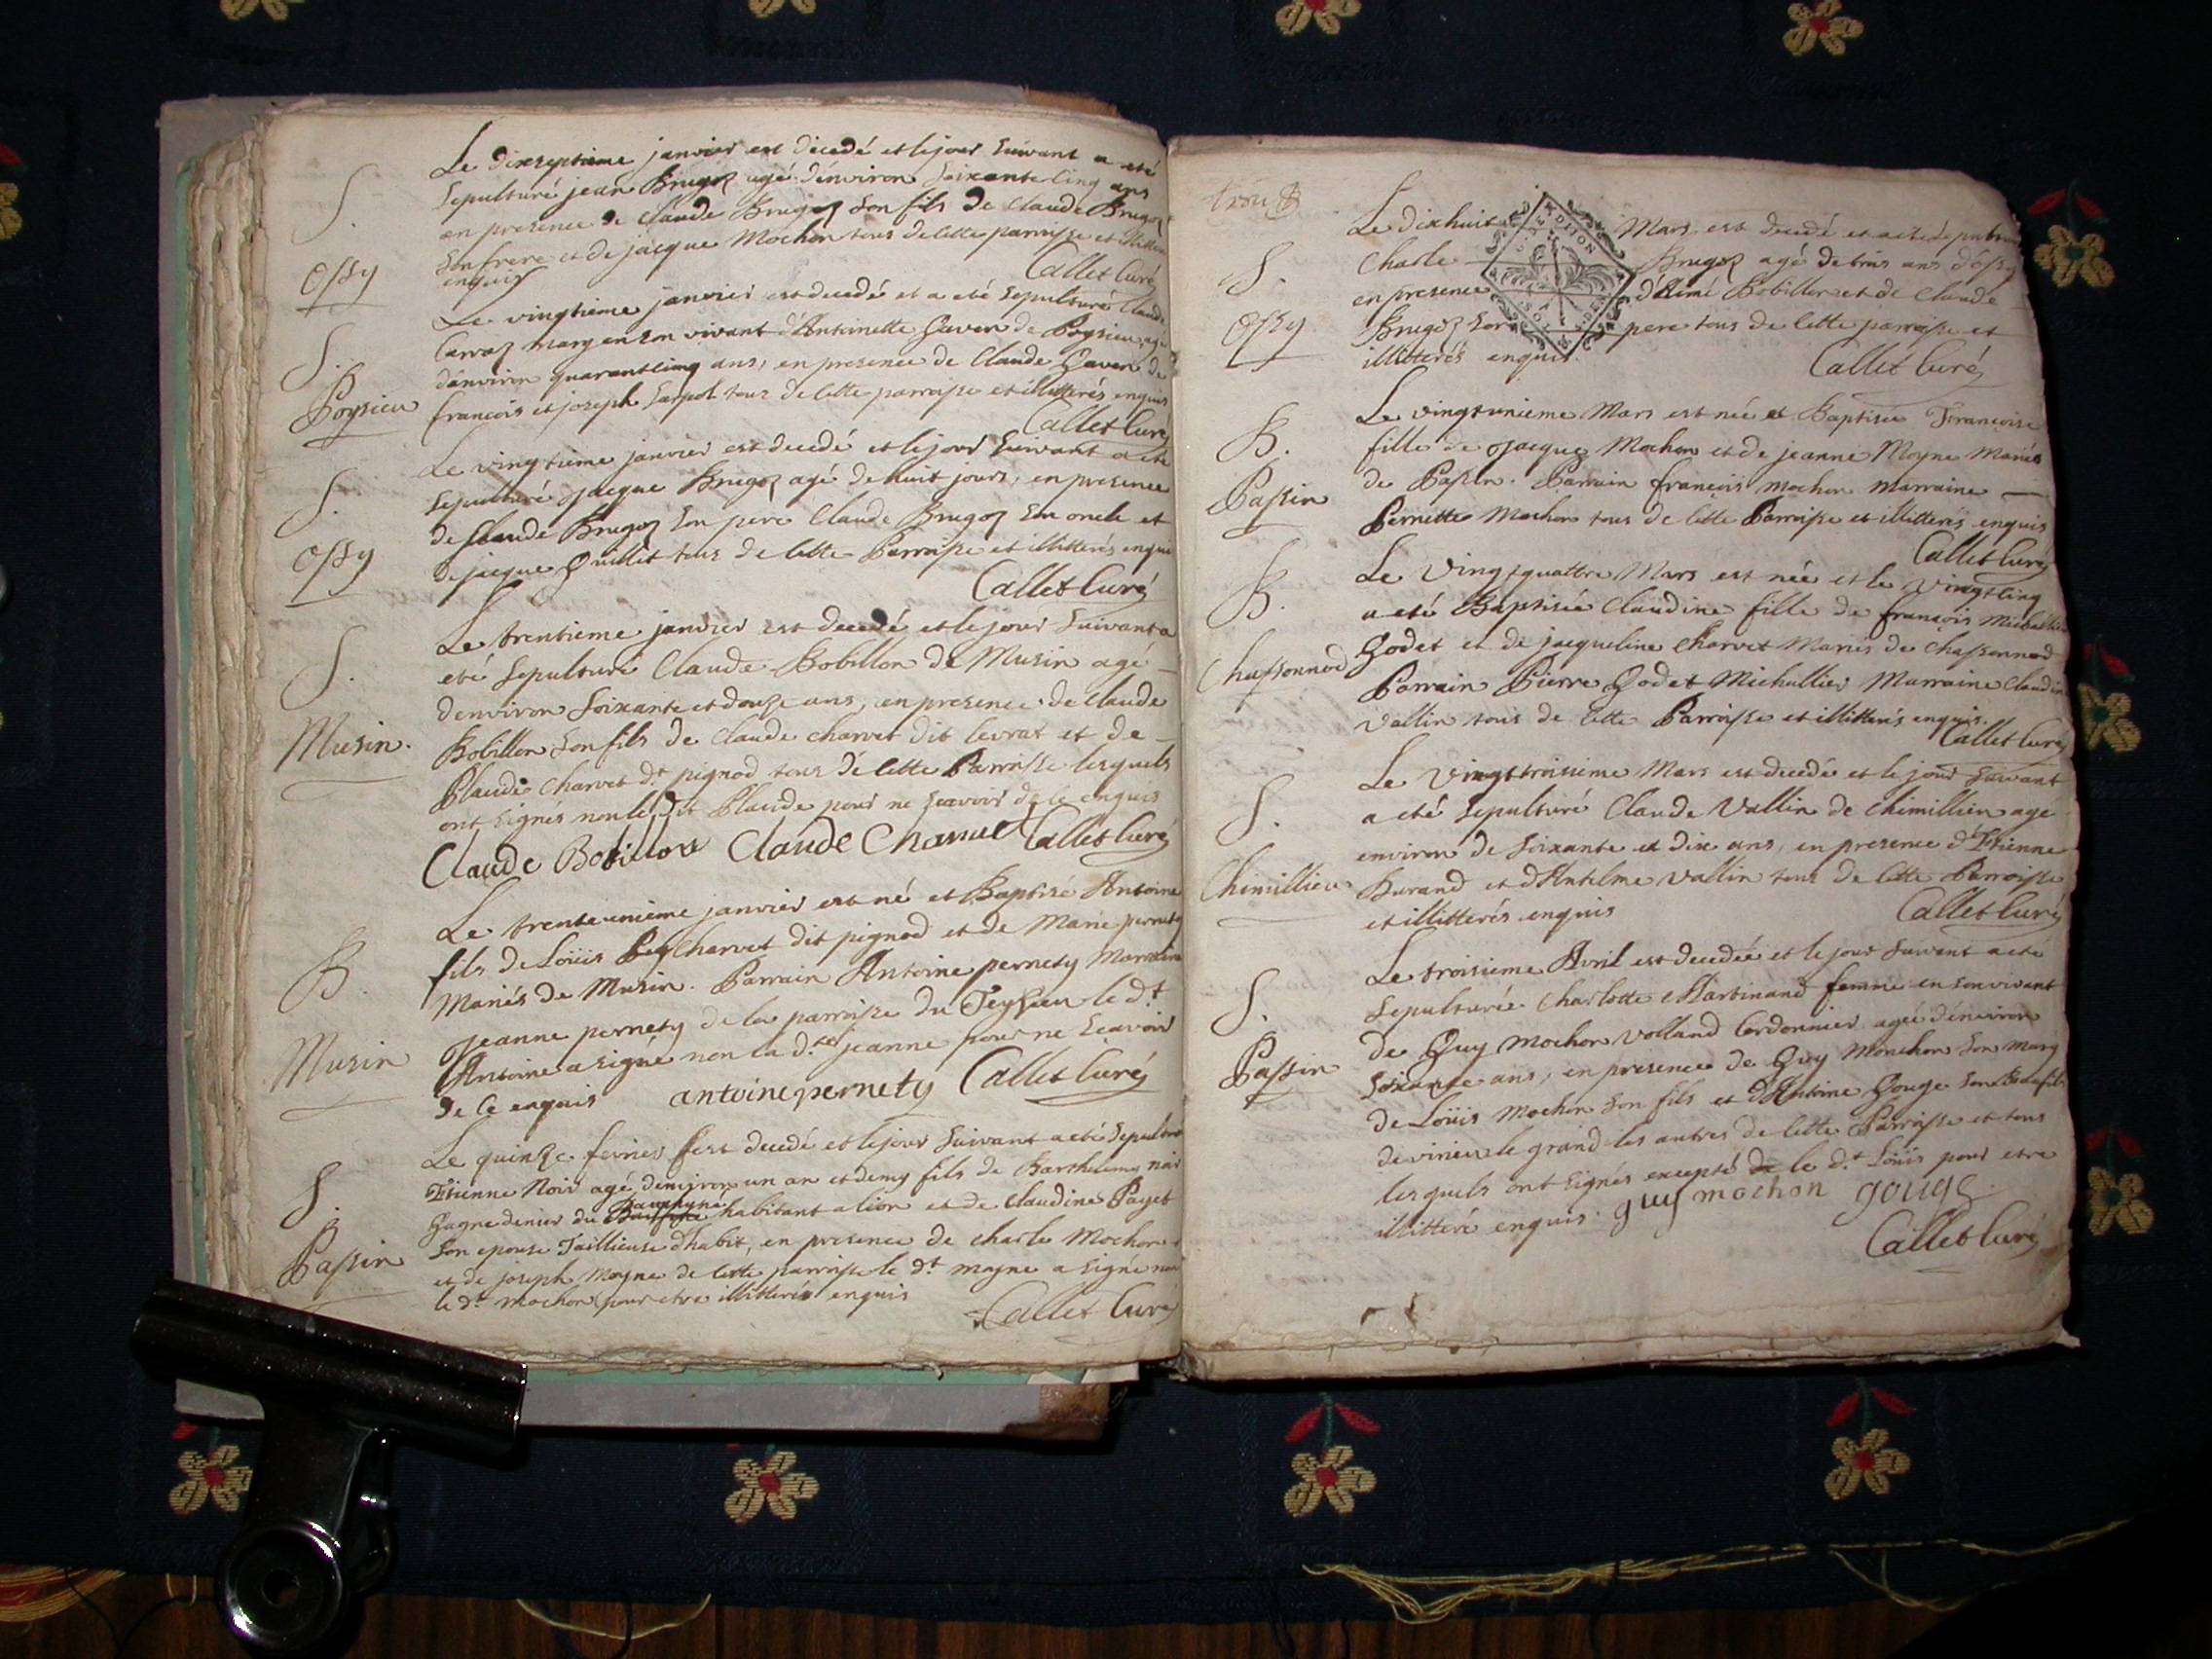 Le dixseptieme janvier est decedé et le jour Suivant a eté
S.
Sepulturé jean Brugoz agé d'environ Soixante cinq ans
en presence de Claude Brugoz Son fils de Claude Brugoz
Ossy
Son frere et de jacque Mochon tous de cette parroisse et
enquis
Callet Curé
Le vingtieme janvier est decedé et a eté Sepulturé Claude
S.
Carraz mary en son vivant d'Antoinette Gaven de Poysieu agé
d'environ quarantecinq ans, en presence de Claude Gaven de
Poysieu
francois et joseph Carpot tous de cette parroisse et illitterés enquis
Callet Curé
Le vingtieme janvier est decedé et le jour Suivant a eté
S.
Sepulturé jacque Brugoz agé de huit jours, en presence
de Claude Brugoz Son pere Claude Brugoz Son oncle et
Ossy
de jacque Quillet tous de cette Parroisse et illitterés enquis
Callet Curé
Le trentieme janvier est decedé et le jour Suivant a
S.
eté Sepulturé Claude Bobillon de Musin agé
d'environ Soixante et douze ans, en presence de Claude
Musin.
Bobillon Son fils de Claude charvet dit levrat et de
Claude Charvet dt pignod tous de cette Parroisse lesquels
ont Signés non le dit Claude pour ne Sçavoir de ce enquis
Claude Bobillon Claude Charvet Callet Curé
Le trente unieme janvier est né et Baptisé Antoine
B.
fils de Loüis Charvet dit pignod et de Marie pernety
Mariés de Musin. Parrain Antoine pernety Marraine
Musin
Jeanne pernety de la parroisse du Teyssieu le dt
Antoine a signé non la dte jeanne pour ne Sçavoir
de ce enquis antoine pernety Callet Curé
Le quinze fevrier est decedé et le jour Suivant a eté Sepulturé
S.
Etienne Noir agé d'environ un an et demy fils de Barthelemy noir
Dauphyné
Gagne denier du habitant a lion et de Claudine Paget
Passin
Son epouse Taillieuse d'habit, en presence de charle Mochon
et de joseph Moyne de cette parroisse le dt moyne a Signé non
le dt mochon pour etre illitteré enquis
Callet Curé
Le dixhuit Mars est decedé et a eté Sepulturé
S.
Charle Brugoz agé de trois ans d'ossy
en presence d'Aimé Bobillon et de Claude
Ossy
Brugoz Son pere tous de cette parroisse et
illitterés enquis
Callet Curé
Le vingtunieme Mars est née et Baptisée Francoise
B.
fille de Jacque Mochon et de jeanne Moyne Mariés
Passin
de Passin. Parrain francois mochon Marraine
Pernette Mochon tous de cette Parroisse et illitterés enquis
Callet Curé
Le Vingtquattre Mars est née et le vingtcinq
B.
a eté Baptisée Claudine fille de francois
Chassonnod
Godet et de jacqueline Charvet Mariés de Chassonnod
Parrain Pierre Godet Michallier Marraine Claudine
Vallin tous de cette Parroisse et illitterés enquis.
Callet Curé
Le Vingttroisieme Mars est decedé et le jour Suivant
S.
a eté Sepulturé Claude Vallin de Chimillieu agé
environ de Soixante et dix ans, en presence d'Etienne
Chimillieu
Durand et d'Antelme Vallin tous de cette Parroisse
et illitterés enquis
Callet Curé
Le troisieme Avril est decedée et le jour Suivant a eté
S.
Sepulturée Charlotte Martinand femme en son vivant
de Guy mochon Volland Cordonnier agée d'environ
Passin
Soixante ans, en presence de Guy Mochon Son mary
de Loüis Mochon Son fils et d'Antoine Gouge Son Beaufils
de virieu le grand les autres de cette Parroisse et tous
lesquels ont Signés excepté le dt Loüis pour etre
illitteré enquis guy mochon gouge
Callet Curé